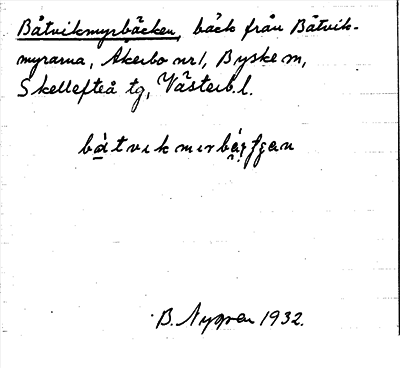 Båtvikmyrbäcken, bäck från Båtvik-
myrarna, Åkerbo nr 1, Byske sn,
Skellefteå tg, Västerb. l.
B. Nygren 1932.